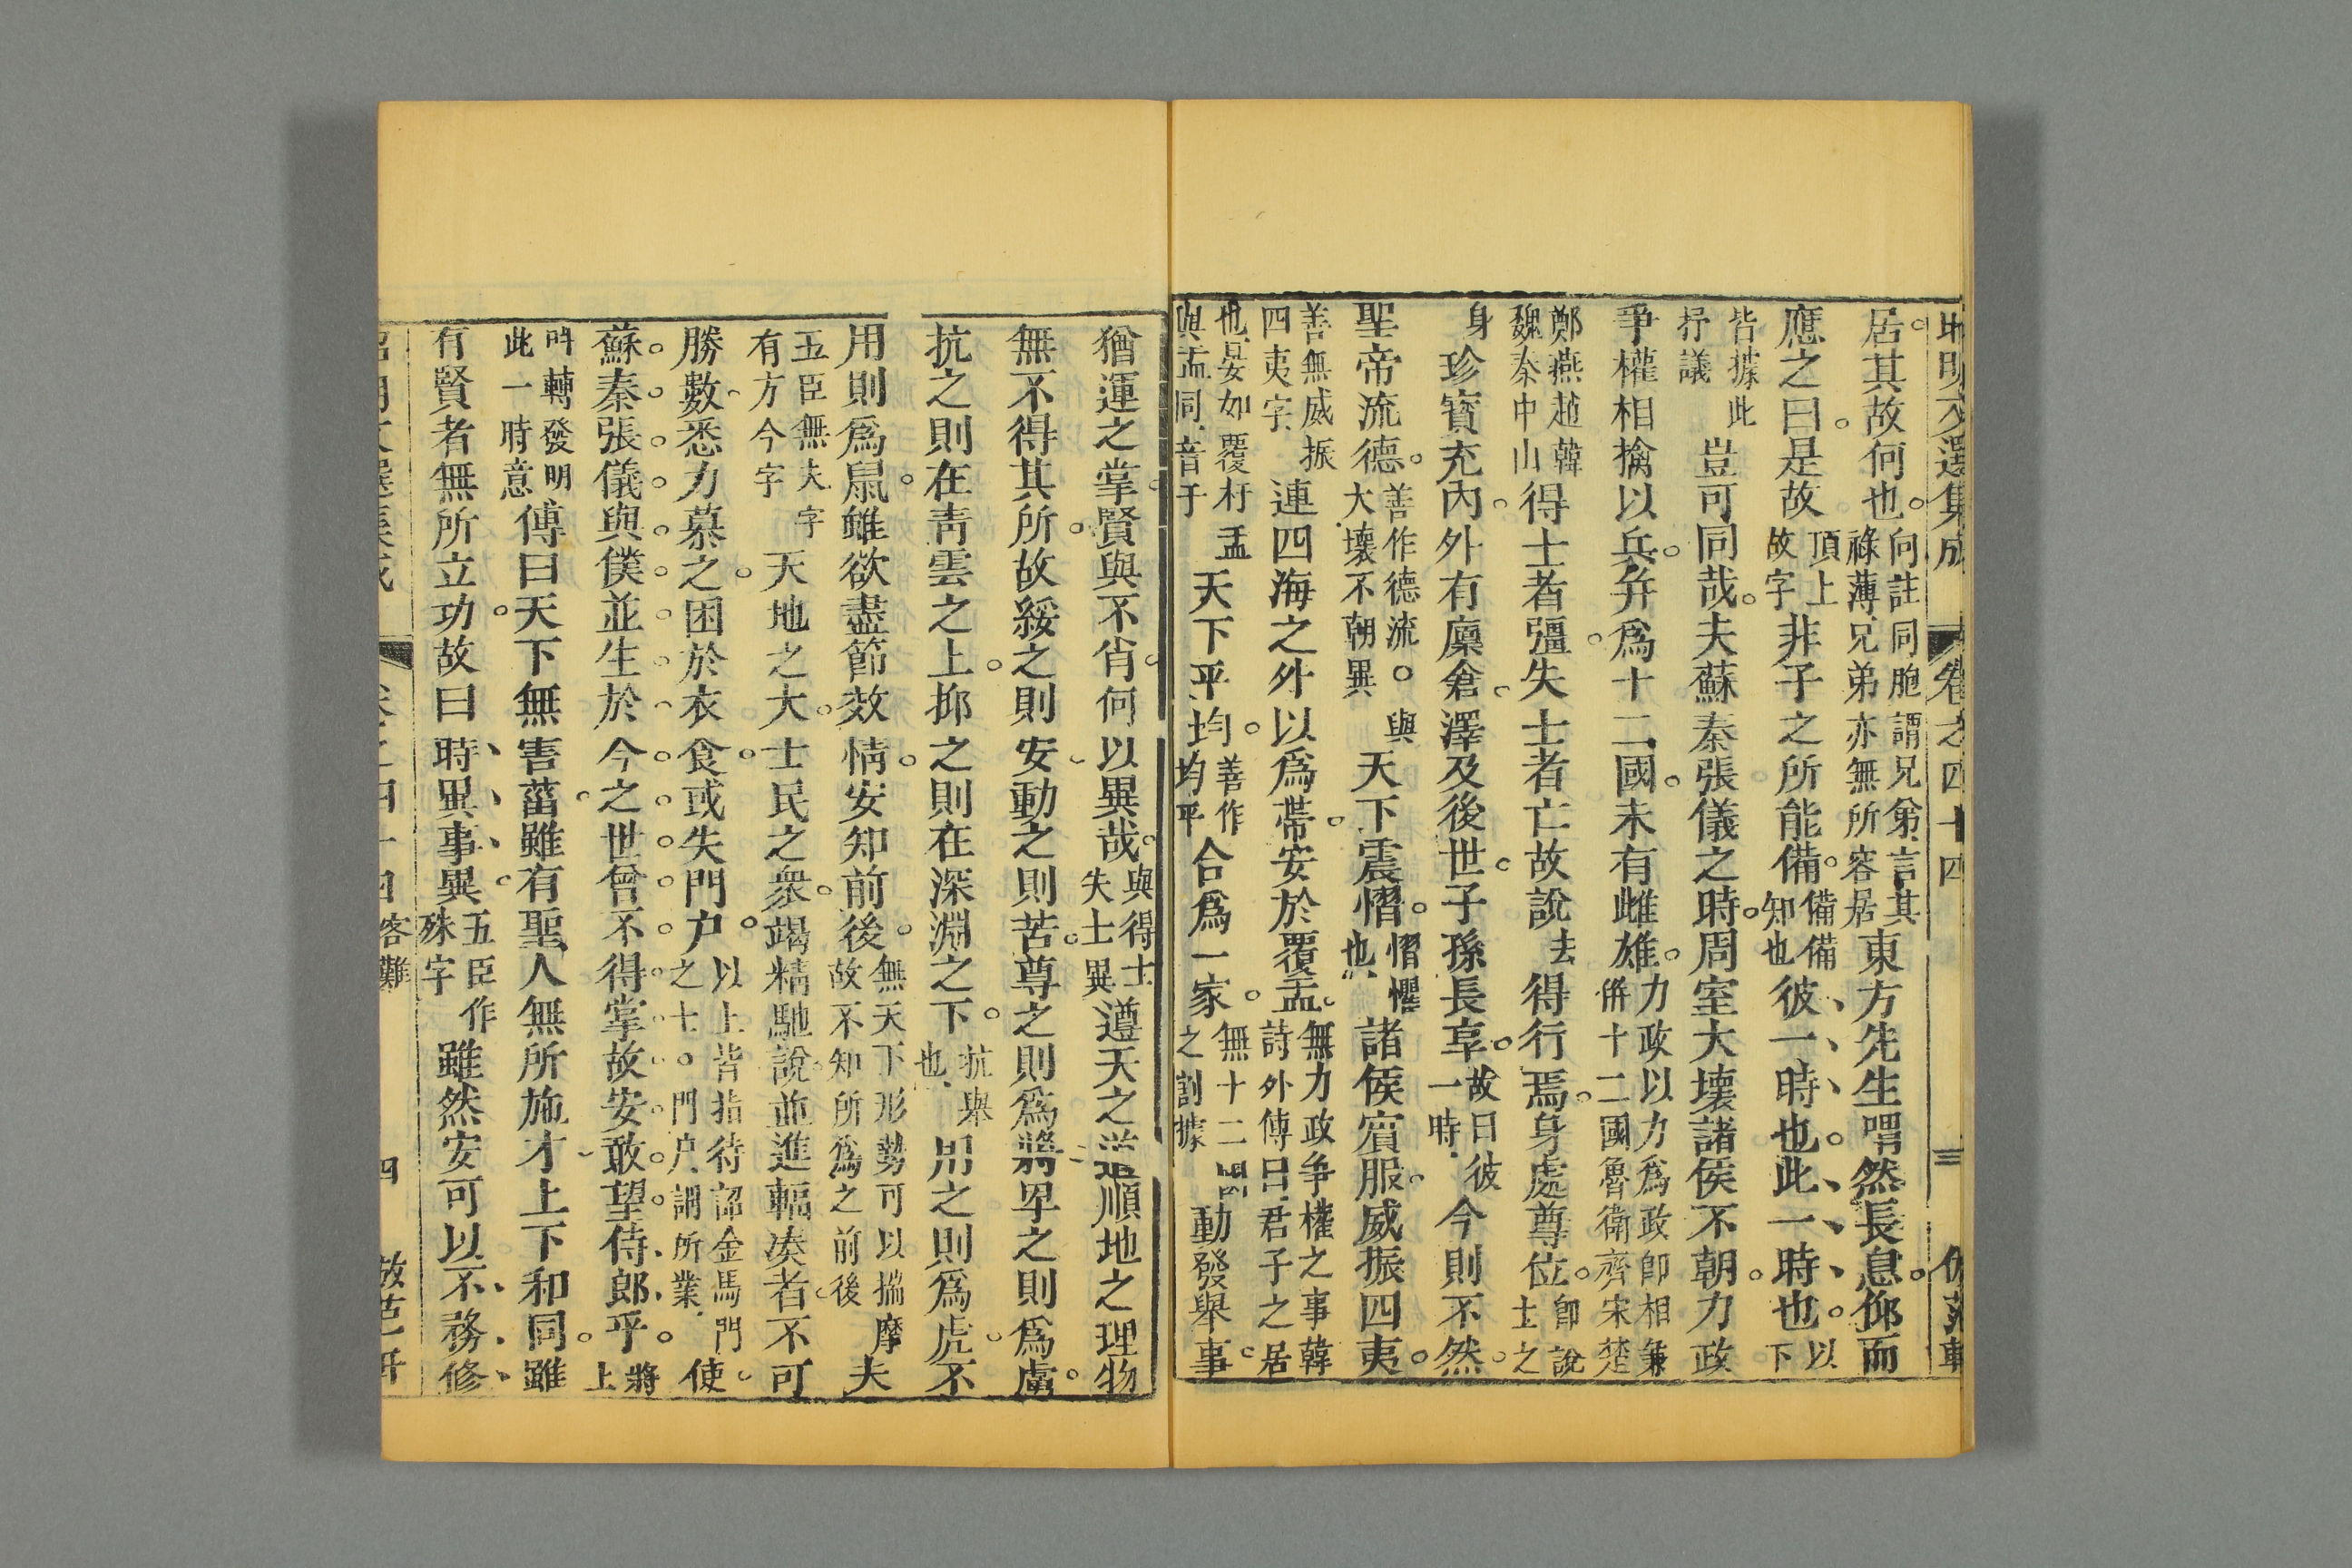 昭明文選集成 卷之四十四 三 倣范軒
居其故何也向註同胞謂兄弟言其祿薄兄弟亦無所容居東方先生喟然長息仰而
應之曰是故頂上故字非子之所能備備備知也彼一時也此一時也以下
皆據此抒議豈可同哉夫蘇秦張儀之時周室大壞諸侯不朝力政
爭權相擒以兵并爲十二國未有雌雄力政以力爲政卽相兼倂十二國魯衛齊宋楚
鄭燕趙韓魏秦中山得士者彊失士者亡故說去得行焉身處尊位卽說士之
身珍寶充內外有廩倉澤及後世子孫長享故曰彼一時今則不然
聖帝流德善作德流。大壞不朝異與天下震慴慴懼也諸侯賓服威振四夷
善無威振四夷字連四海之外以爲帶安於覆盂無力政爭權之事韓詩外傳曰君子之居
也晏如覆杅盂與盂同音于天下平均善作均平合爲一家無十二國之割據動發舉事
猶運之掌賢與不肖何以異哉與得士失士異遵天之道順地之理物
無不得其所故綏之則安動之則苦尊之則爲將卑之則爲虜
抗之則在青雲之上抑之則在深淵之下抗舉也用之則爲虎不
用則爲鼠雖欲盡節效情安知前後無天下形勢可以揣摩故不知所爲之前後夫
五臣無夫字有方今字天地之大士民之衆竭精馳說並進輻湊者不可
勝數悉力慕之困於衣食或失門户以上皆指待詔金馬門之士。門户謂所業使
蘇秦張儀與僕並生於今之世曾不得掌故安敢望侍郎乎將上
此一時意傳曰天下無害菑雖有聖人無所施才上下和同雖
有賢者無所立功故曰時異事異五臣作殊字雖然安可以不務修
昭明文選集成 卷之四十四 答難 四 倣范軒